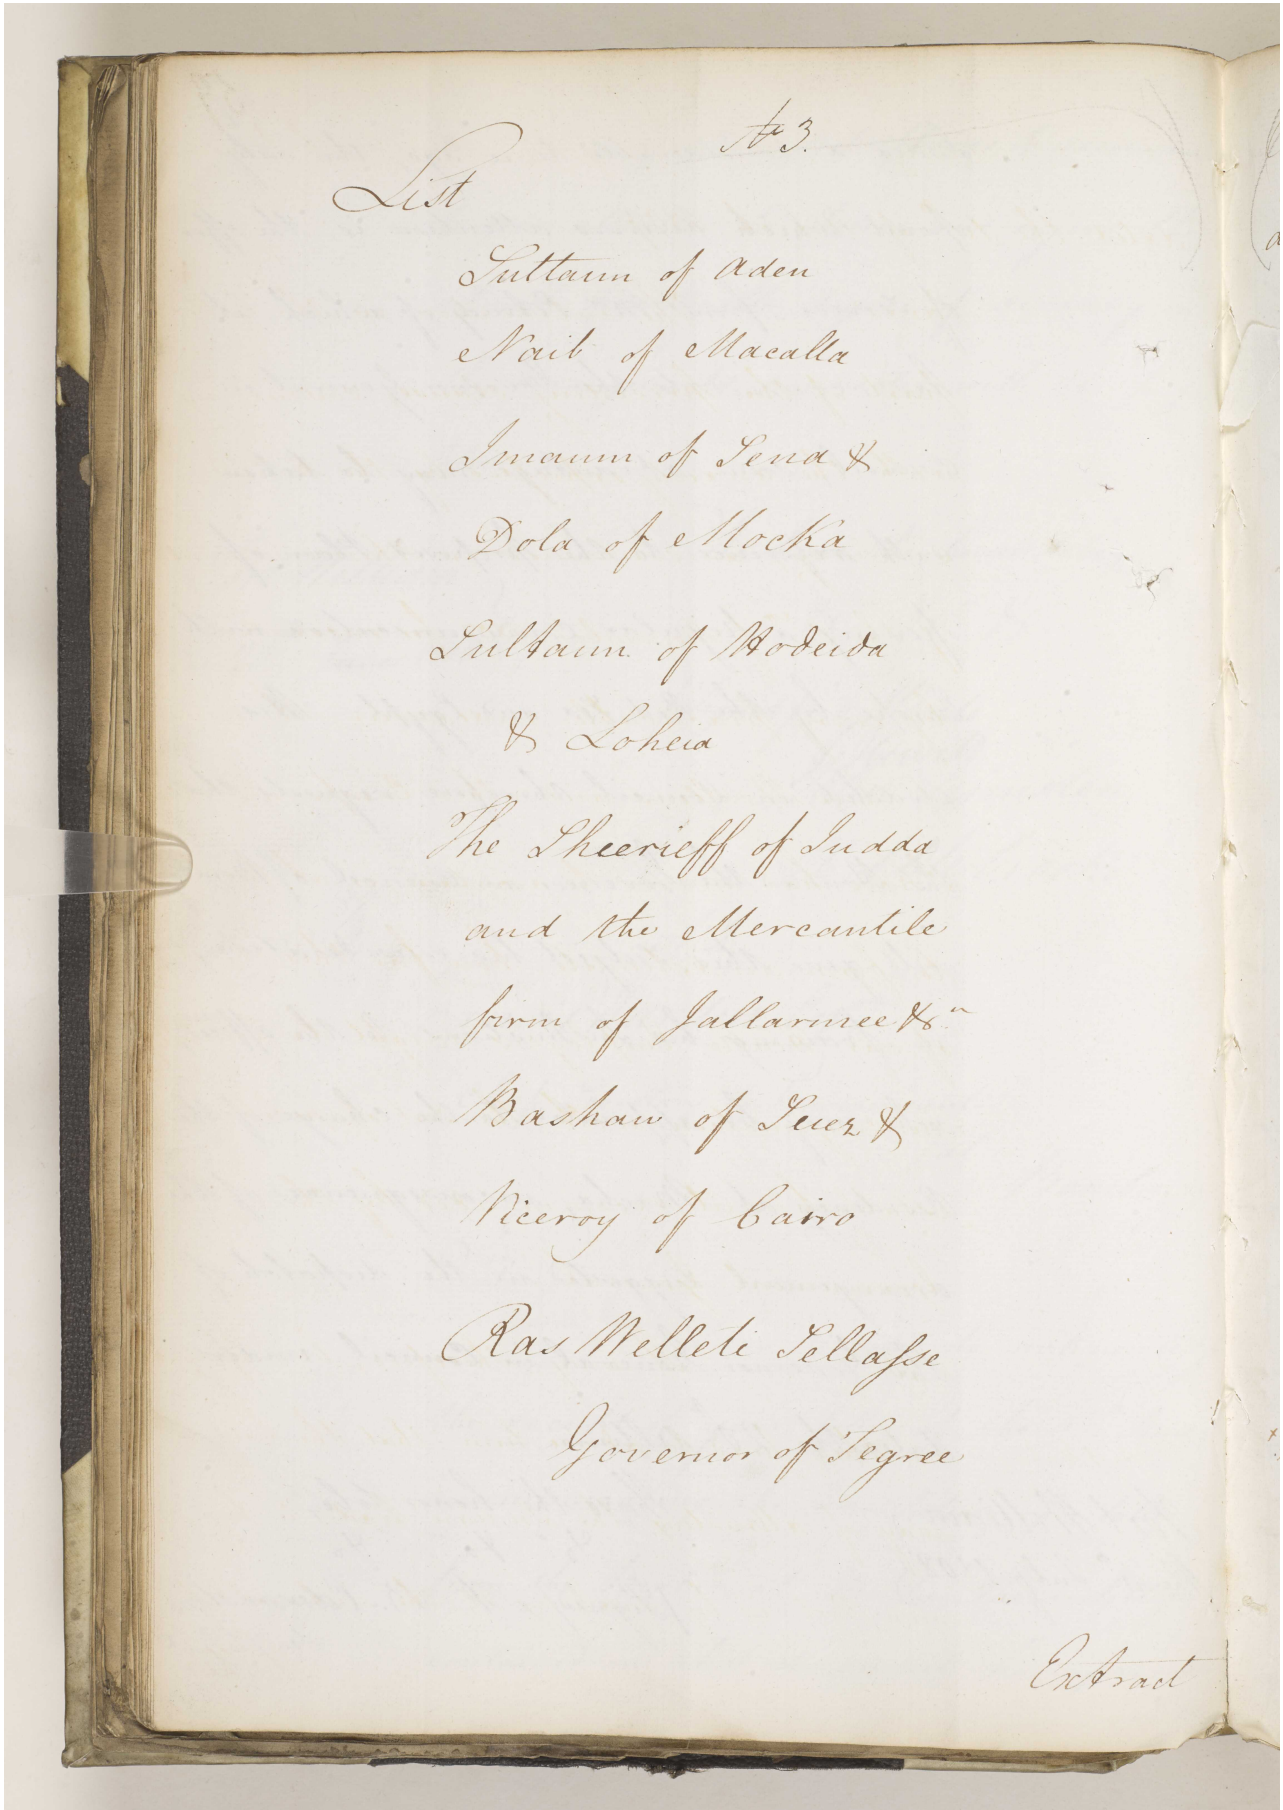 No 3.
List
Sultaun of Aden
Naib of Macalla
Imaum of Sena &
Dola of Mocka
Sultaun of Hodeida
& Loheia
The Sheerieff of Judda
and the Mercantile
firm of Jallarmee &c
Bashaw of Suez &
Viceroy of Cairo
Ras Welleti Sellasse
Governor of Tegree
Extract